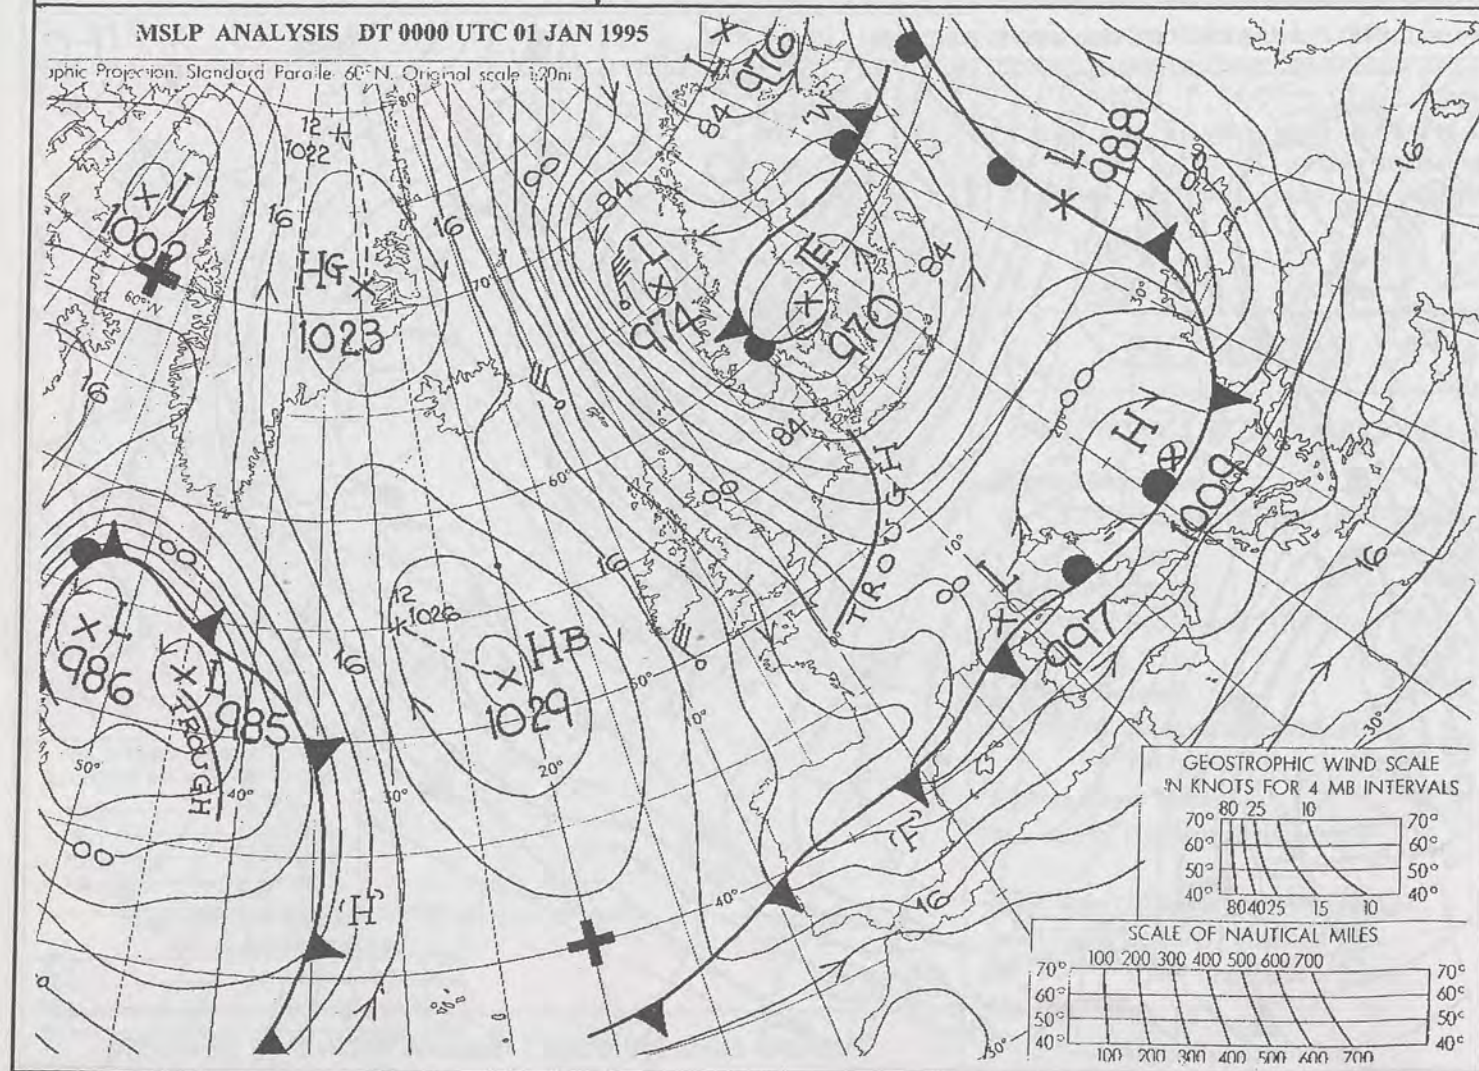 MSLP ANALYSIS DT 0000 UTC 01 JAN 1995
aphic Projection. Standard Paralle 60°N. Original scale 1:20m
L
976
84
80
12
1022
L
1002
60°N
HG
1023
16
16
00
84
L
974
LE
970
84
L
988
00
16
70°
30°
16
84
TROUGH
00
H
1009
00
20°
60°
10°
16
00
L
997
16
00
L
986
L
985
TROUGH
12
1026
HB
1029
16
50°
10°
50°
40°
30°
20°
30°
00
'H'
40°
'F'
16
30°
0
GEOSTROPHIC WIND SCALE
IN KNOTS FOR 4 MB INTERVALS
80 25 10
70° 70°
60° 60°
50° 50°
40° 40°
80 40 25 15 10
SCALE OF NAUTICAL MILES
100 200 300 400 500 600 700
70° 70°
60° 60°
50° 50°
40° 40°
100 200 300 400 500 600 700